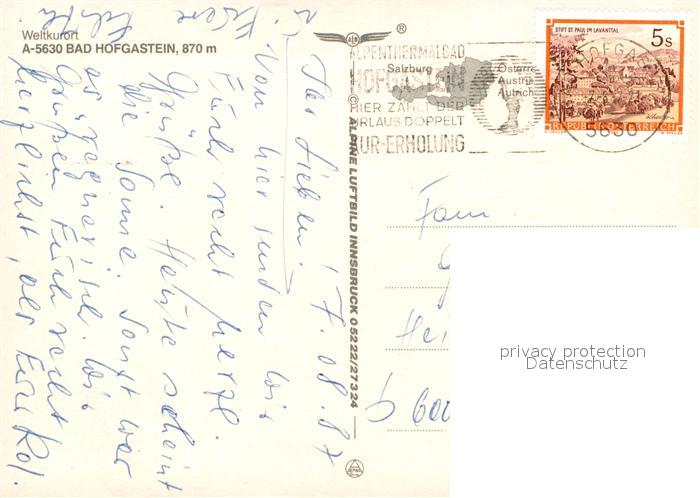 Weltkurort
A-5630 BAD HOFGASTEIN, 870 m
Ihr Lieben! 7.08.87
Von hier senden wir
Euch recht herzl.
Grüße. Heute scheint
die Sonne. Sonst war
es regnerisch. Wir
Grüßen Euch recht
herzlichst, als Eure
© ALPINE LUFTBILD INNSBRUCK 05222/27324
ALPENTHERMALBAD
HOFGASTEIN
HIER ZÄHLT DER
URLAUB DOPPELT
KUR-ERHOLUNG
Salzburg
Österre
Austria
Autrich
STIFT ST. PAUL IM LAVANTTAL
5 S
REPUBLIK ÖSTERREICH
5630
Fam
Hei
D 600
privacy protection
Datenschutz